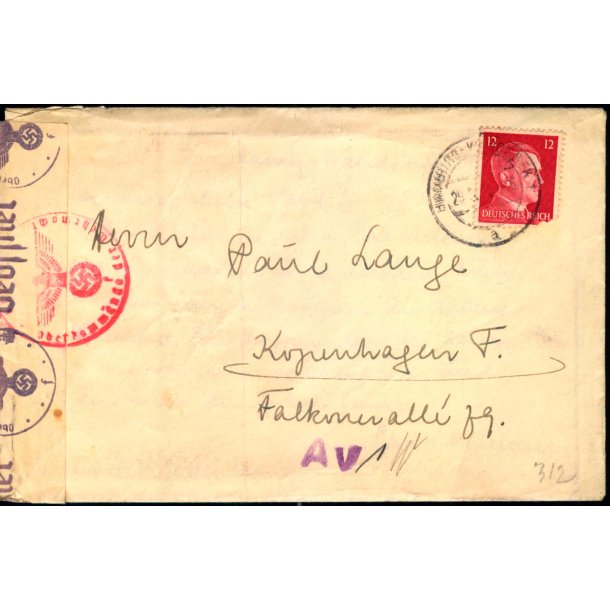 12 12
DEUTSCHES REICH
a
Herrn Paul Lange
Kopenhagen F.
Falkonerallé 79.
AV 1
312
Geöffnet
Oberkommando der
f
f